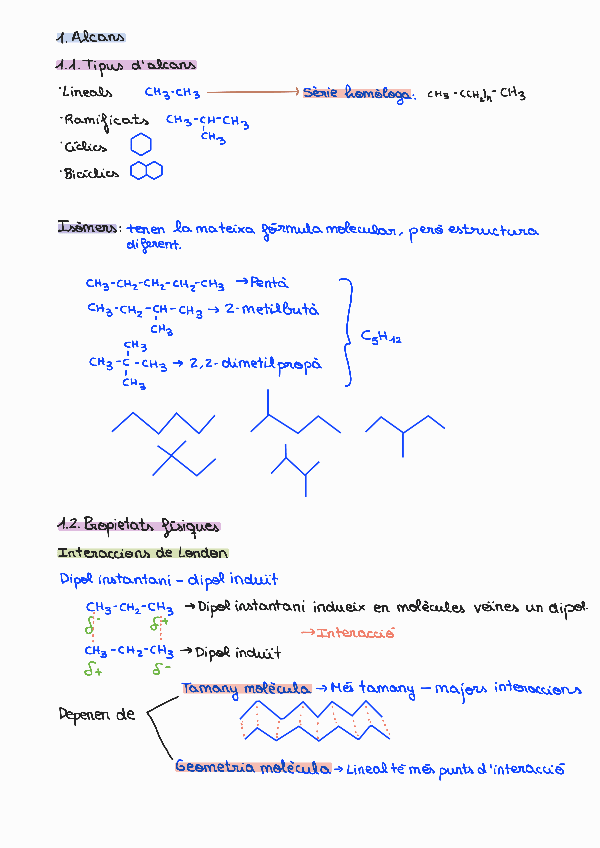 1. Alcans
1.1. Tipus d'alcans
·Lineals CH3-CH3 → Sèrie homòloga: CH3-(CH2)n-CH3
·Ramificats CH3-CH-CH3
CH3
·Cíclics
·Bicíclics
Isòmers: tenen la mateixa fórmula molecular, però estructura
diferent.
CH3-CH2-CH2-CH2-CH3 → Pentà
CH3-CH2-CH-CH3 → 2-metilbutà
CH3
C5H12
CH3
CH3-C-CH3 → 2,2-dimetilpropà
CH3
1.2. Propietats físiques
Interaccions de London
Dipol instantani - dipol induït
CH3-CH2-CH3 → Dipol instantani indueix en molècules veïnes un dipol.
δ- δ+
→ Interacció
CH3-CH2-CH3 → Dipol induït
δ+ δ-
Tamany molècula → Més tamany - majors interaccions
Depenen de
Geometria molècula → Lineal té més punts d'interacció